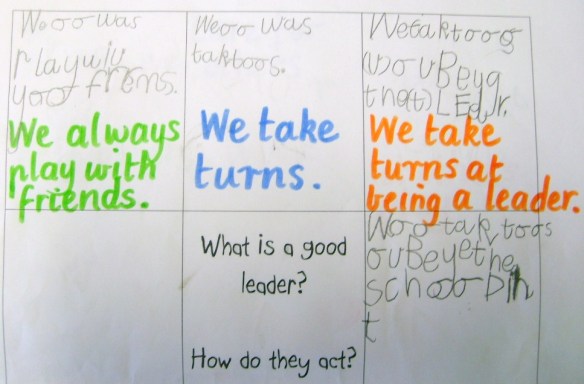 Wooo was
playwiv
yoo frens.
We always
play with
friends.
Weoo was
taktoos.
We take
turns.
Wetaktoog
ouBeyg
the(t)LEdr.
We take
turns at
being a leader.
What is a good
leader?
How do they act?
Woo tak toos
ouBeyethe
schoo
t